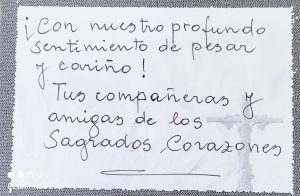 ¡Con nuestro profundo
sentimiento de pesar
y cariño!
Tus compañeras y
amigas de los
Sagrados Corazones